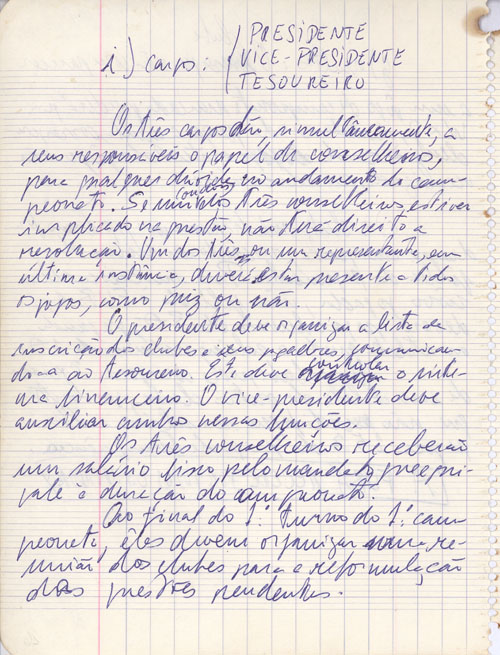 PRESIDENTE
i) cargo: VICE-PRESIDENTE
TESOUREIRO
Os três cargos dão, simultâneamente, a
seus responsáveis o papel de conselheiros,
para quaisquer dúvidas no andamento do cam-
peonato. Se um ou dois dos três conselheiros estiver
implicado na questão, não terá direito a
resolução. Um dos três, ou um representante, em
última instância, deverá estar presente a todos
os jogos, como juiz ou não.
O presidente deve organizar a lista de
inscrição dos clubes e seus jogadores, comunican-
do-a ao tesoureiro. Este deve controlar o siste-
ma financeiro. O vice-presidente deve
auxiliar ambos nessas funções.
Os três conselheiros receberão
um salário fixo pelo mandato, que equi-
vale à duração do campeonato.
Ao final do 1º turno do 1º cam-
peonato, êles devem organizar uma re-
união dos clubes para a reformulação
das questões pendentes.